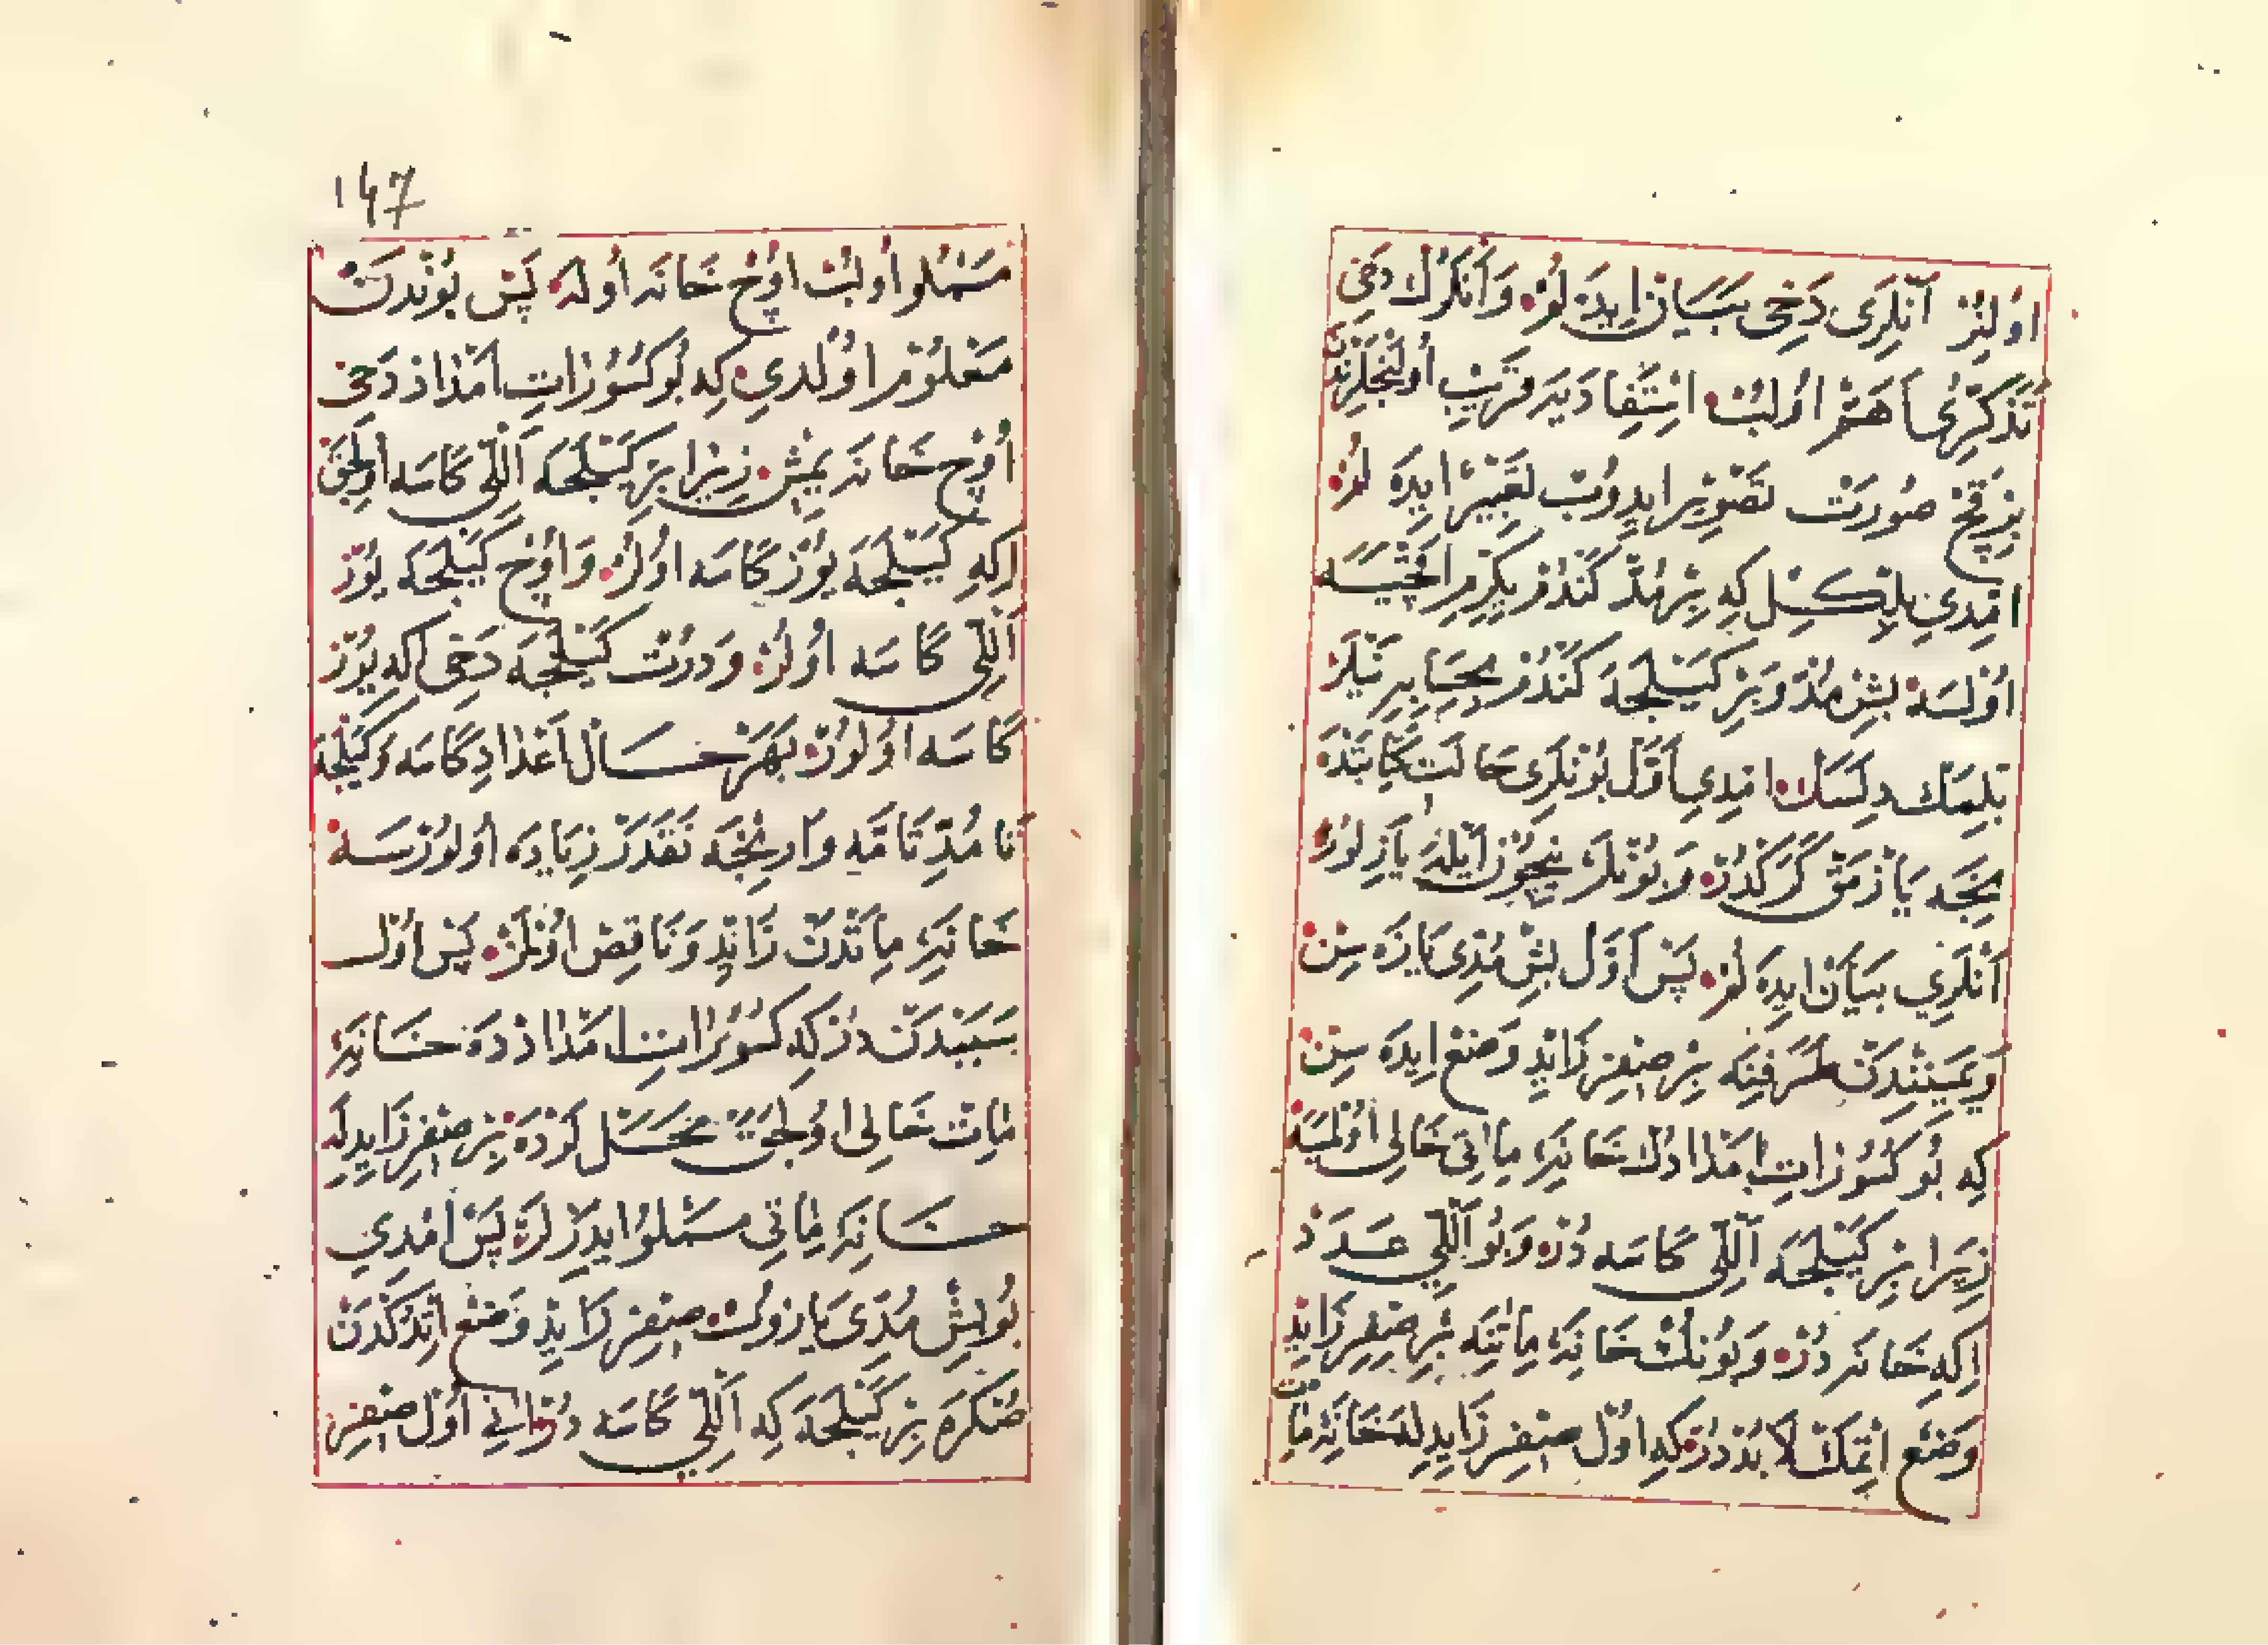 اولنر آنلری دخی بیان ایده لوز وانکرك دخی
تذکری اهم اولب استفادیه قریب اولنجلرندن
بر قچ صورت تصویر ایدوب تعبیر ایده لوز
امدی بلکل که بر مد کندم یکرمر اقچیه
اولسه بش مد و بر کیلجه کندم بحسابیر نیلر
بلمك دلسك امدی اول بونلری حالت کتابتده
نجه یازمق کرکدر وبونلر نیچون ایله یازلور
آنلری بیان ایده لز پس اول بش مدی یازه سن
ویمینندن طرفنه بر صفر زاید وضع ایده سن
که بو کسورات امدادك خانۀ ماتی خالی اولمیه
زیرا بر کیلجه اللی کاسه در وبو اللی عدد
ایکی خانه در وبونك خانۀ ماتنه بر صفر زاید
وضع اتمك لابد در که اول صفر زایدله خانۀ مات
147
مملو اولب اوچ خانه اوله پس بوندن
معلوم اولدی که بو کسورات امداد دخی
اوچ خانه یمش زیرا بر کیلجه اللی کاسه اولجق
اکی کیلجه یوز کاسه اولز واوچ کیلجه یوز
اللی کاسه اولز ودرت کیلجه دخی اکی یوز
کاسه اولوز بهر حال اعداد کاسه وکیلجه
تا مد تامه وارنجیه نقدر زیاده اولورسه
خانۀ ماتدن زاید وناقص اولمز پس اول
سببدن در که کسورات امداد ده خانۀ
مات خالی اولجق محل لرده بر صفر زایدله
خانۀ ماتی مملو ایدرلر پس امدی
بو بش مدی یازوب صفر زاید وضع اتدکدن
صکره بر کیلجه که اللی کاسه در آنی اول صفر